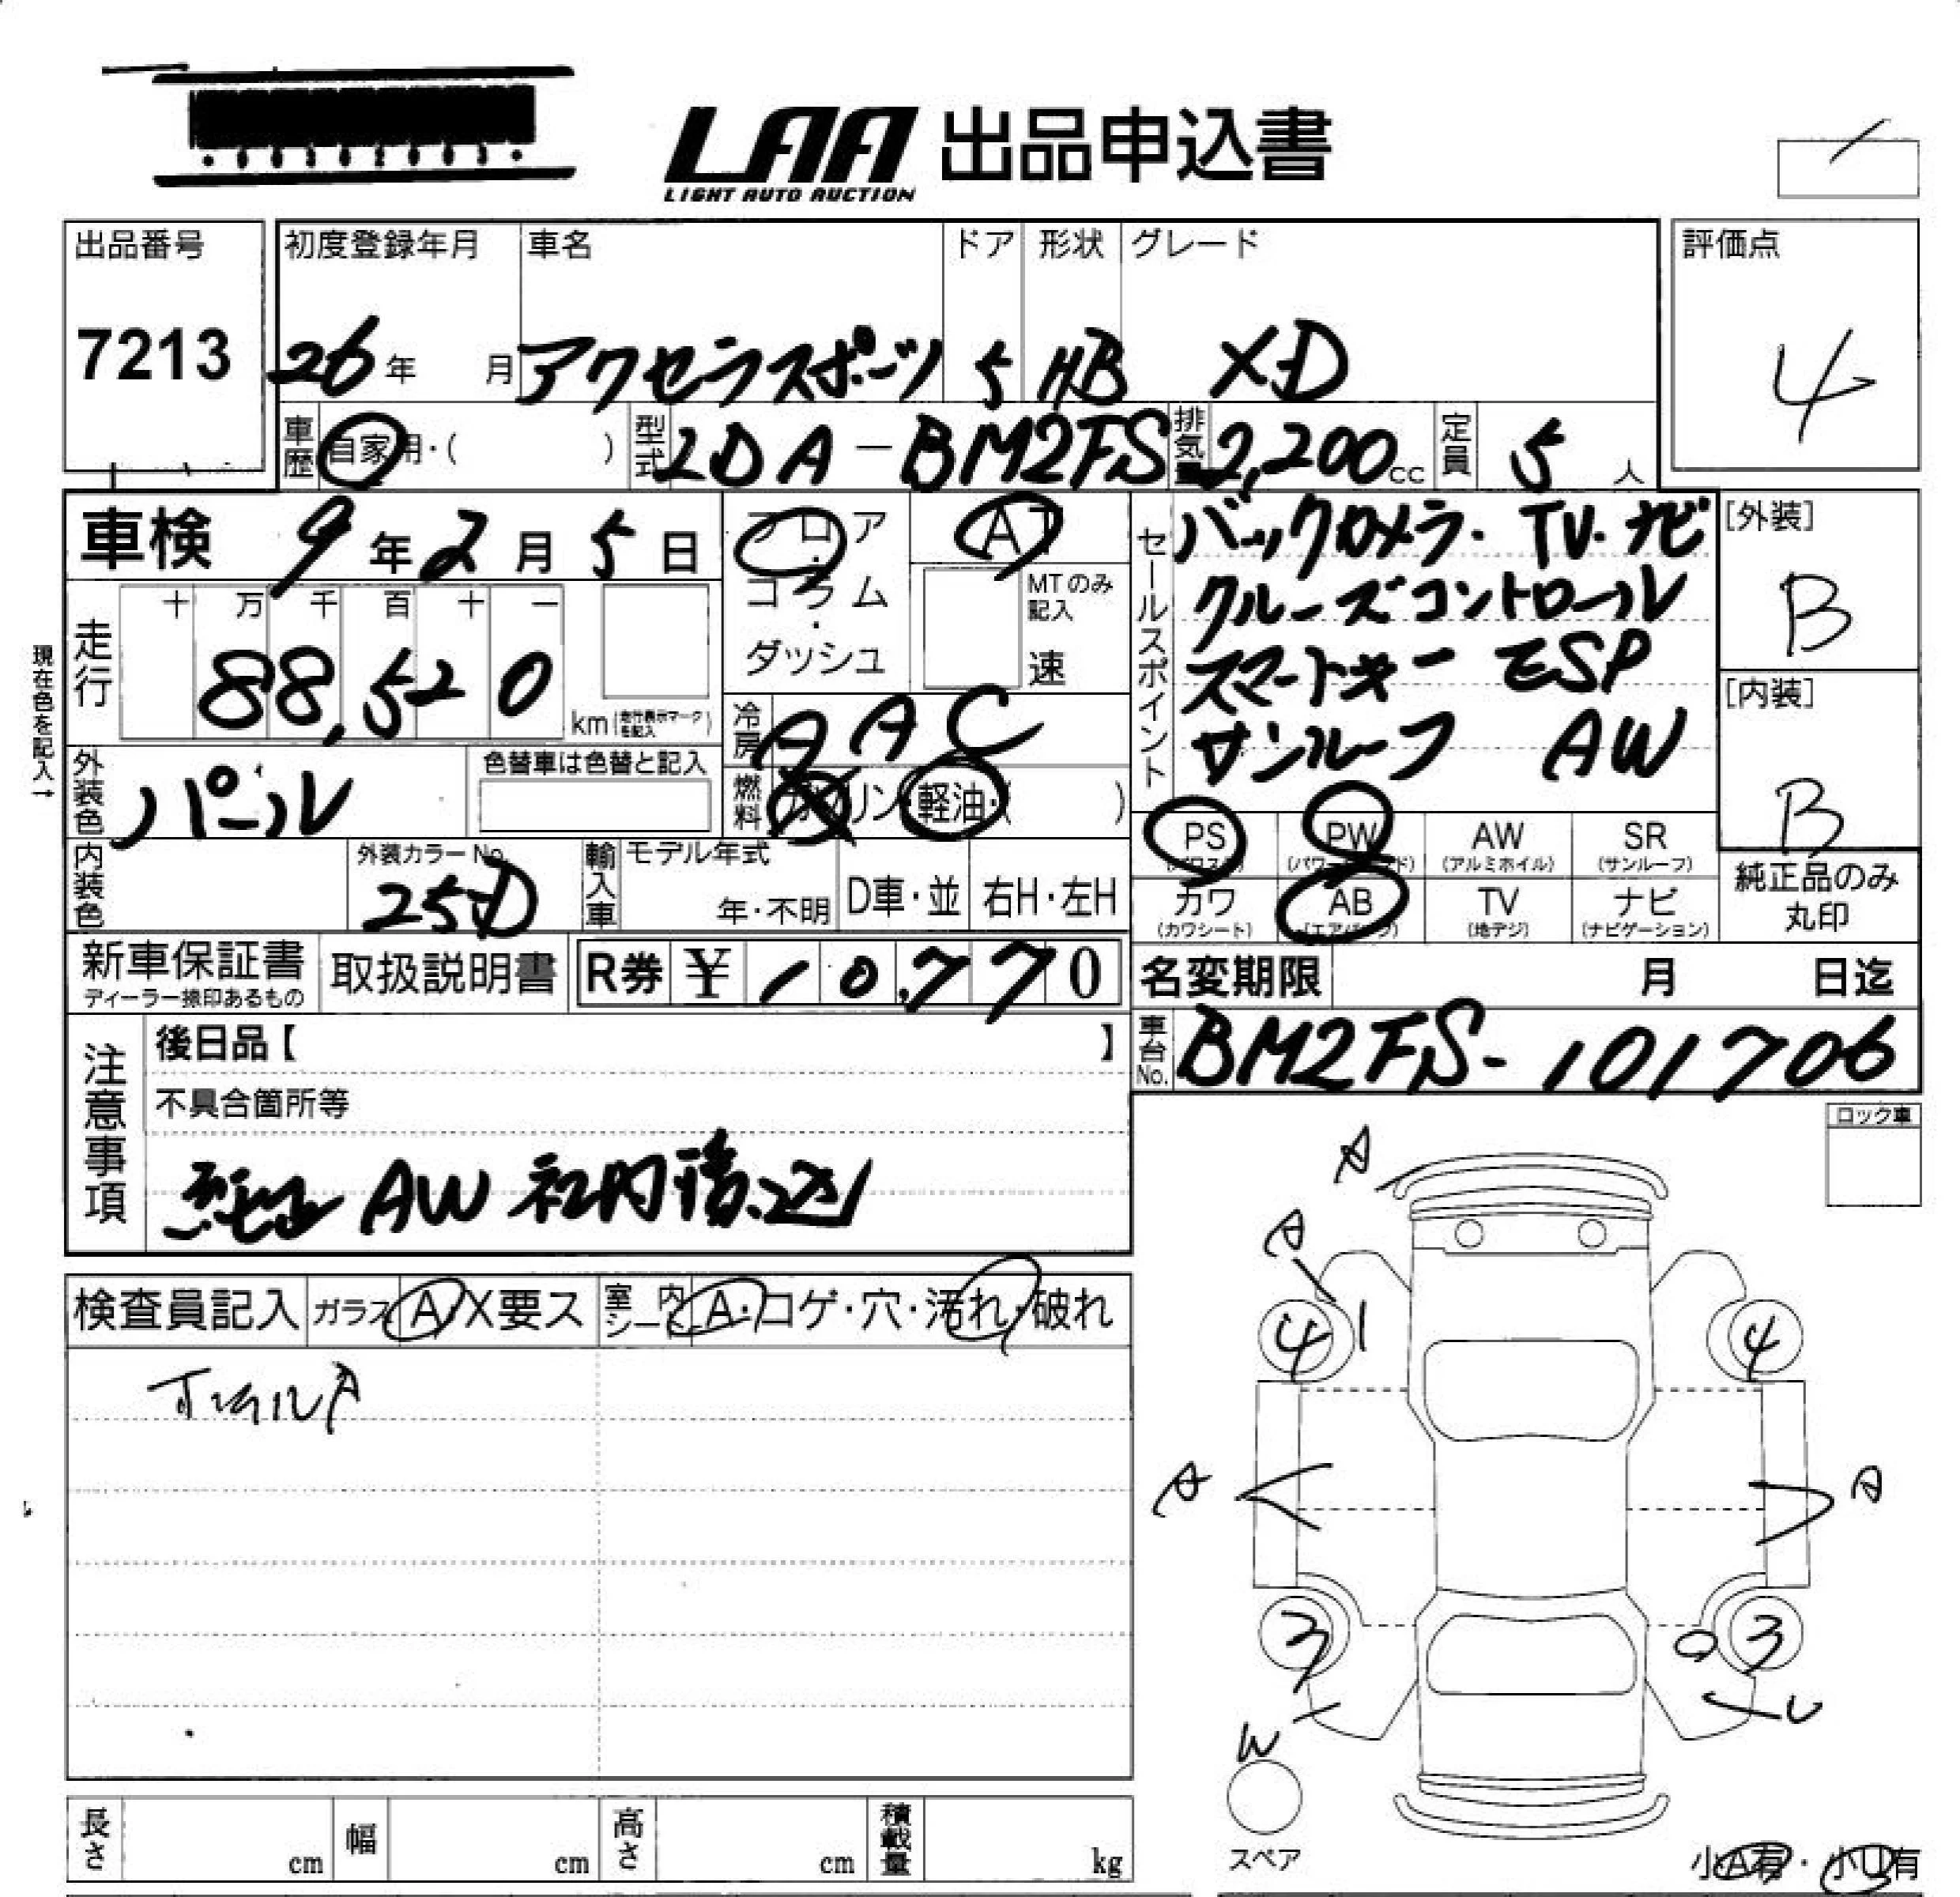 LAA 出品申込書
LIGHT AUTO AUCTION
出品番号
7213
初度登録年月
26年 月
車名
アクセラスポーツ
ドア
5
形状
HB
グレード
XD
評価点
4
車歴 自家用・( )
型式 LDA-BM2FS
排気量 2,200cc
定員 5人
車検 9年2月5日
フロア・コラム・ダッシュ
AT
MTのみ記入
速
セールスポイント
バックカメラ・TV・ナビ
クルーズコントロール
スマートキー ESP
サンルーフ AW
[外装]
B
[内装]
B
現在色を記入→
走行
十 万 千 百 十 一
88,520
km(走行表示マークを記入)
冷房 AAC
燃料 ガソリン・軽油・( )
外装色 パール
色替車は色替と記入
PS
PW
AW (アルミホイル)
SR (サンルーフ)
カワ (カワシート)
AB (エアバッグ)
TV (地デジ)
ナビ (ナビゲーション)
純正品のみ丸印
内装色
外装カラーNo.
25D
輸入車
モデル年式
年・不明
D車・並
右H・左H
新車保証書
ディーラー捺印あるもの
取扱説明書
R券 ¥10,770
名変期限 月 日迄
車台No. BM2FS-101706
注意事項
後日品【 】
不具合箇所等
純正 AW 社内積込
ロック車
検査員記入
ガラス A・X要ス
室内シート A・コゲ・穴・汚れ・破れ
ホイルA
A
A
4 1
4
A
A
3
3
U
W
スペア
小A有・小U有
長さ cm
幅 cm
高さ cm
積載量 kg